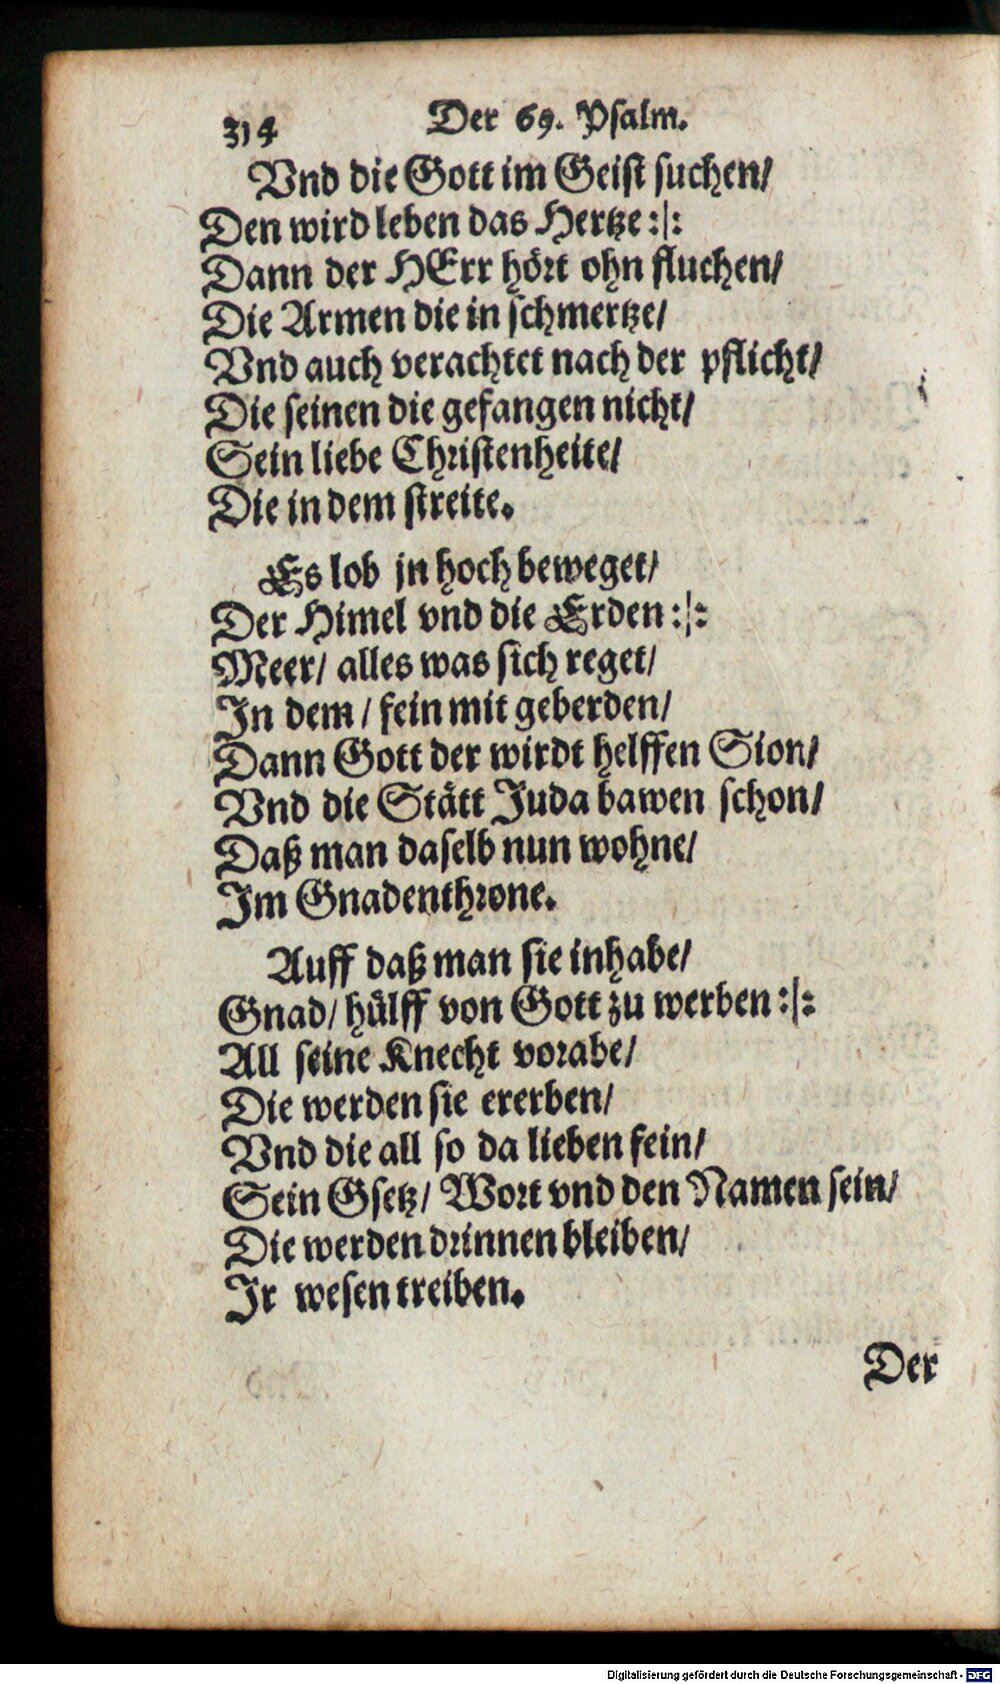 314 Der 69. Psalm.
Vnd die Gott im Geist suchen/
Den wird leben das Hertze :|:
Dann der HErr hört ohn fluchen/
Die Armen die in schmertze/
Vnd auch verachtet nach der pflicht/
Die seinen die gefangen nicht/
Sein liebe Christenheite/
Die in dem streite.
Es lob jn hoch beweget/
Der Himel vnd die Erden :|:
Meer/ alles was sich reget/
In dem / fein mit geberden/
Dann Gott der wirdt helffen Sion/
Vnd die Stätt Juda bawen schon/
Daß man daselb nun wohne/
Im Gnadenthrone.
Auff daß man sie inhabe/
Gnad/ hülff von Gott zu werben :|:
All seine Knecht vorabe/
Die werden sie ererben/
Vnd die all so da lieben fein/
Sein Gsetz/ Wort vnd den Namen sein/
Die werden drinnen bleiben/
Ir wesen treiben.
Der
Digitalisierung gefördert durch die Deutsche Forschungsgemeinschaft - DFG